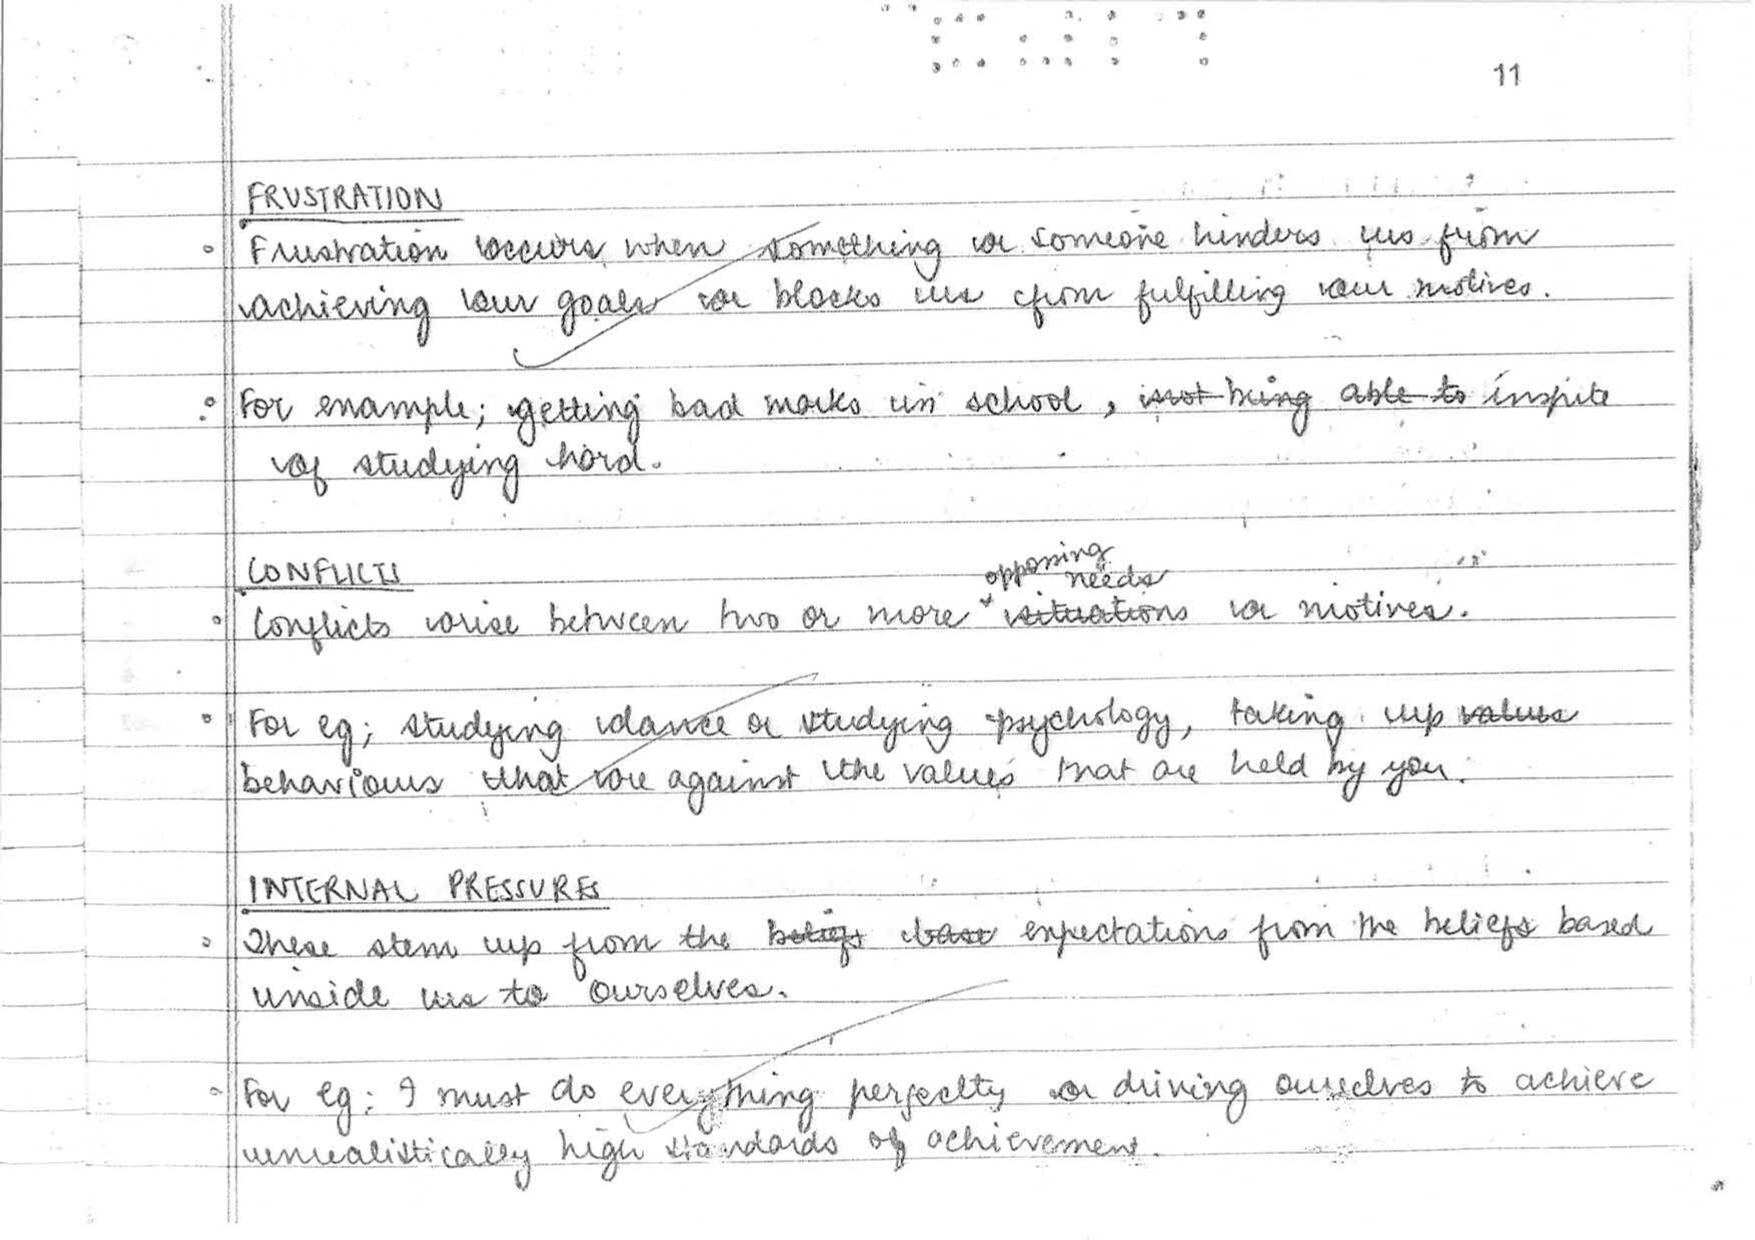 11
FRUSTRATION
Frustration occurs when something or someone hinders us from
achieving our goals or blocks us from fulfilling our motives.
For example; getting bad marks in school, ~~not being able to~~ inspite
of studying hard.
CONFLICTS
opposing
needs
Conflicts arise between two or more ~~situations~~ or motives.
For eg; studying dance or studying psychology, taking up ~~values~~
behaviours that are against the values that are held by you.
INTERNAL PRESSURES
These stem up from the ~~beliefs~~ ~~base~~ expectations from the beliefs based
inside us to ourselves.
For eg: I must do everything perfectly or driving ourselves to achieve
unrealistically high standards of achievement.